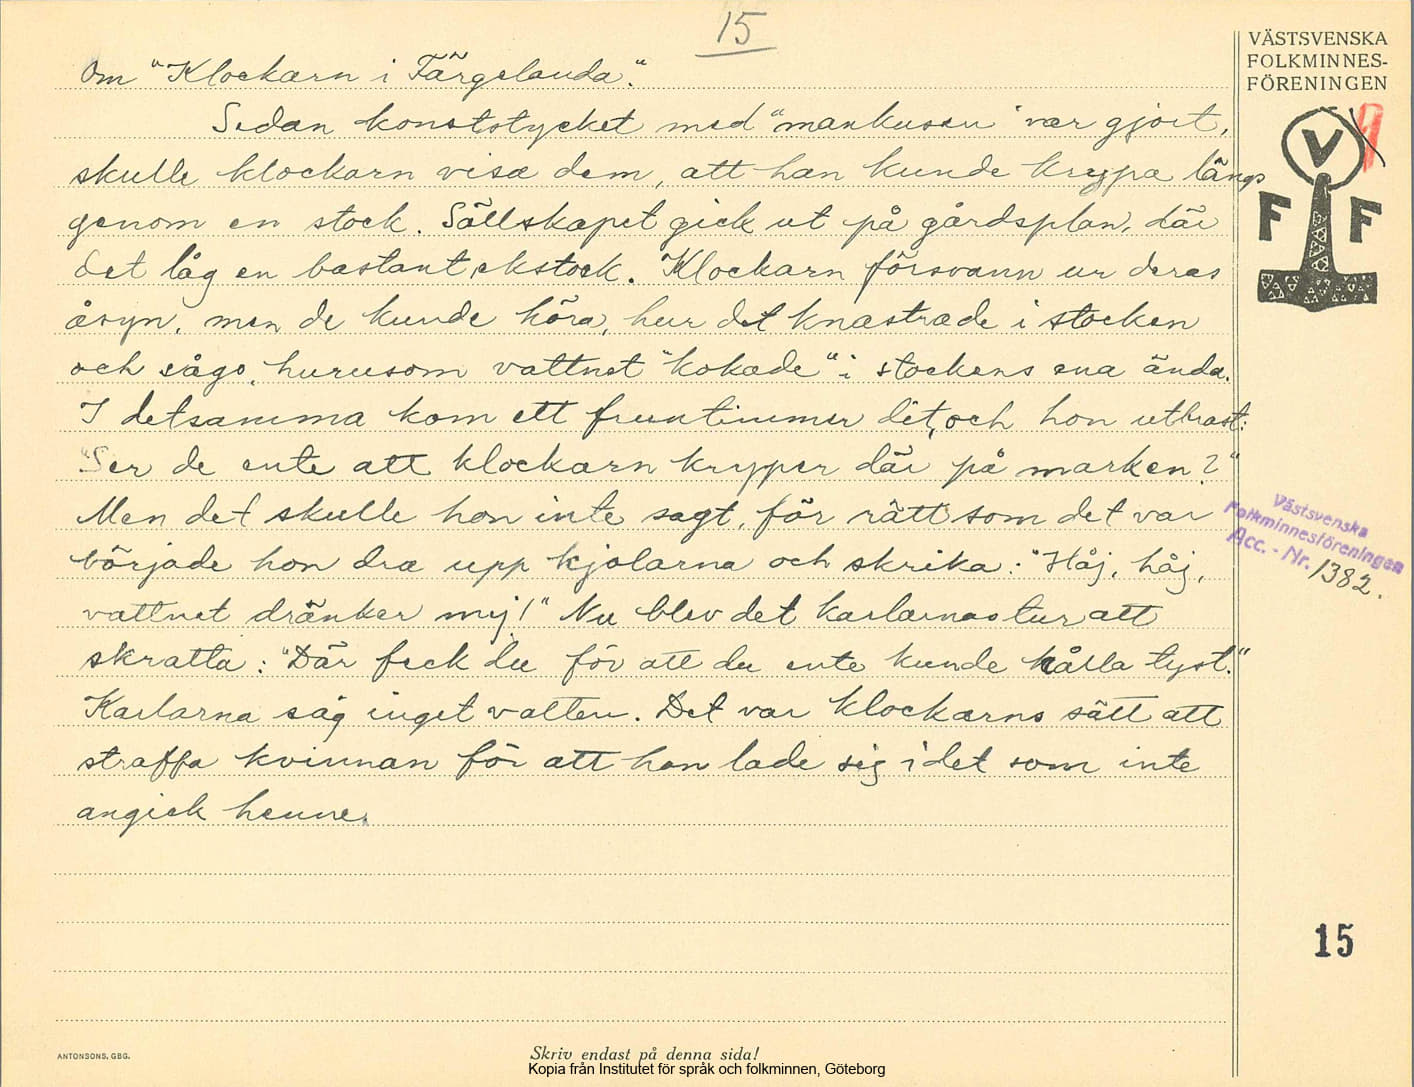 15
VÄSTSVENSKA
FOLKMINNES-
FÖRENINGEN
V
F F
Om "Klockarn i Färgelanda".
Sedan konststycket med "mankusen" var gjort,
skulle klockarn visa dem, att han kunde krypa längs
genom en stock. Sällskapet gick ut på gårdsplan, där
det låg en bastant ekstock. Klockarn försvann ur deras
åsyn, men de kunde höra, hur det knastrade i stocken
och sågo, hurusom vattnet "kokade" i stockens ena ända.
I detsamma kom ett fruntimmer dit, och hon utbrast:
"Ser de ente att klockarn kryper där på marken?"
Men det skulle hon inte sagt, för rätt som det var
började hon dra upp kjolarna och skrika: "Håj, håj,
vattnet dränker mej!" Nu blev det karlarnas tur att
skratta: "Där feck du för att du ente kunde hålla tyst."
Karlarna såg inget vatten. Det var klockarns sätt att
straffa kvinnan för att hon lade sig i det som inte
angick henne.
Västsvenska
Folkminnesföreningen
Acc. - Nr. 1382.
15
ANTONSONS, GBG.
Skriv endast på denna sida!
Kopia från Institutet för språk och folkminnen, Göteborg